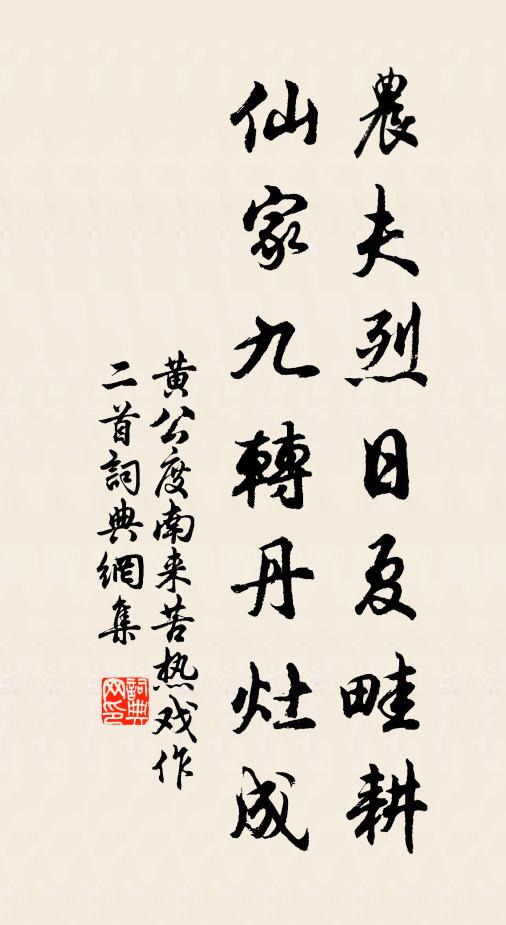 農夫烈日夏畦耕
仙家九轉丹灶成
黄公度南来苦热戏作
二首詞典網集
詞典
网印